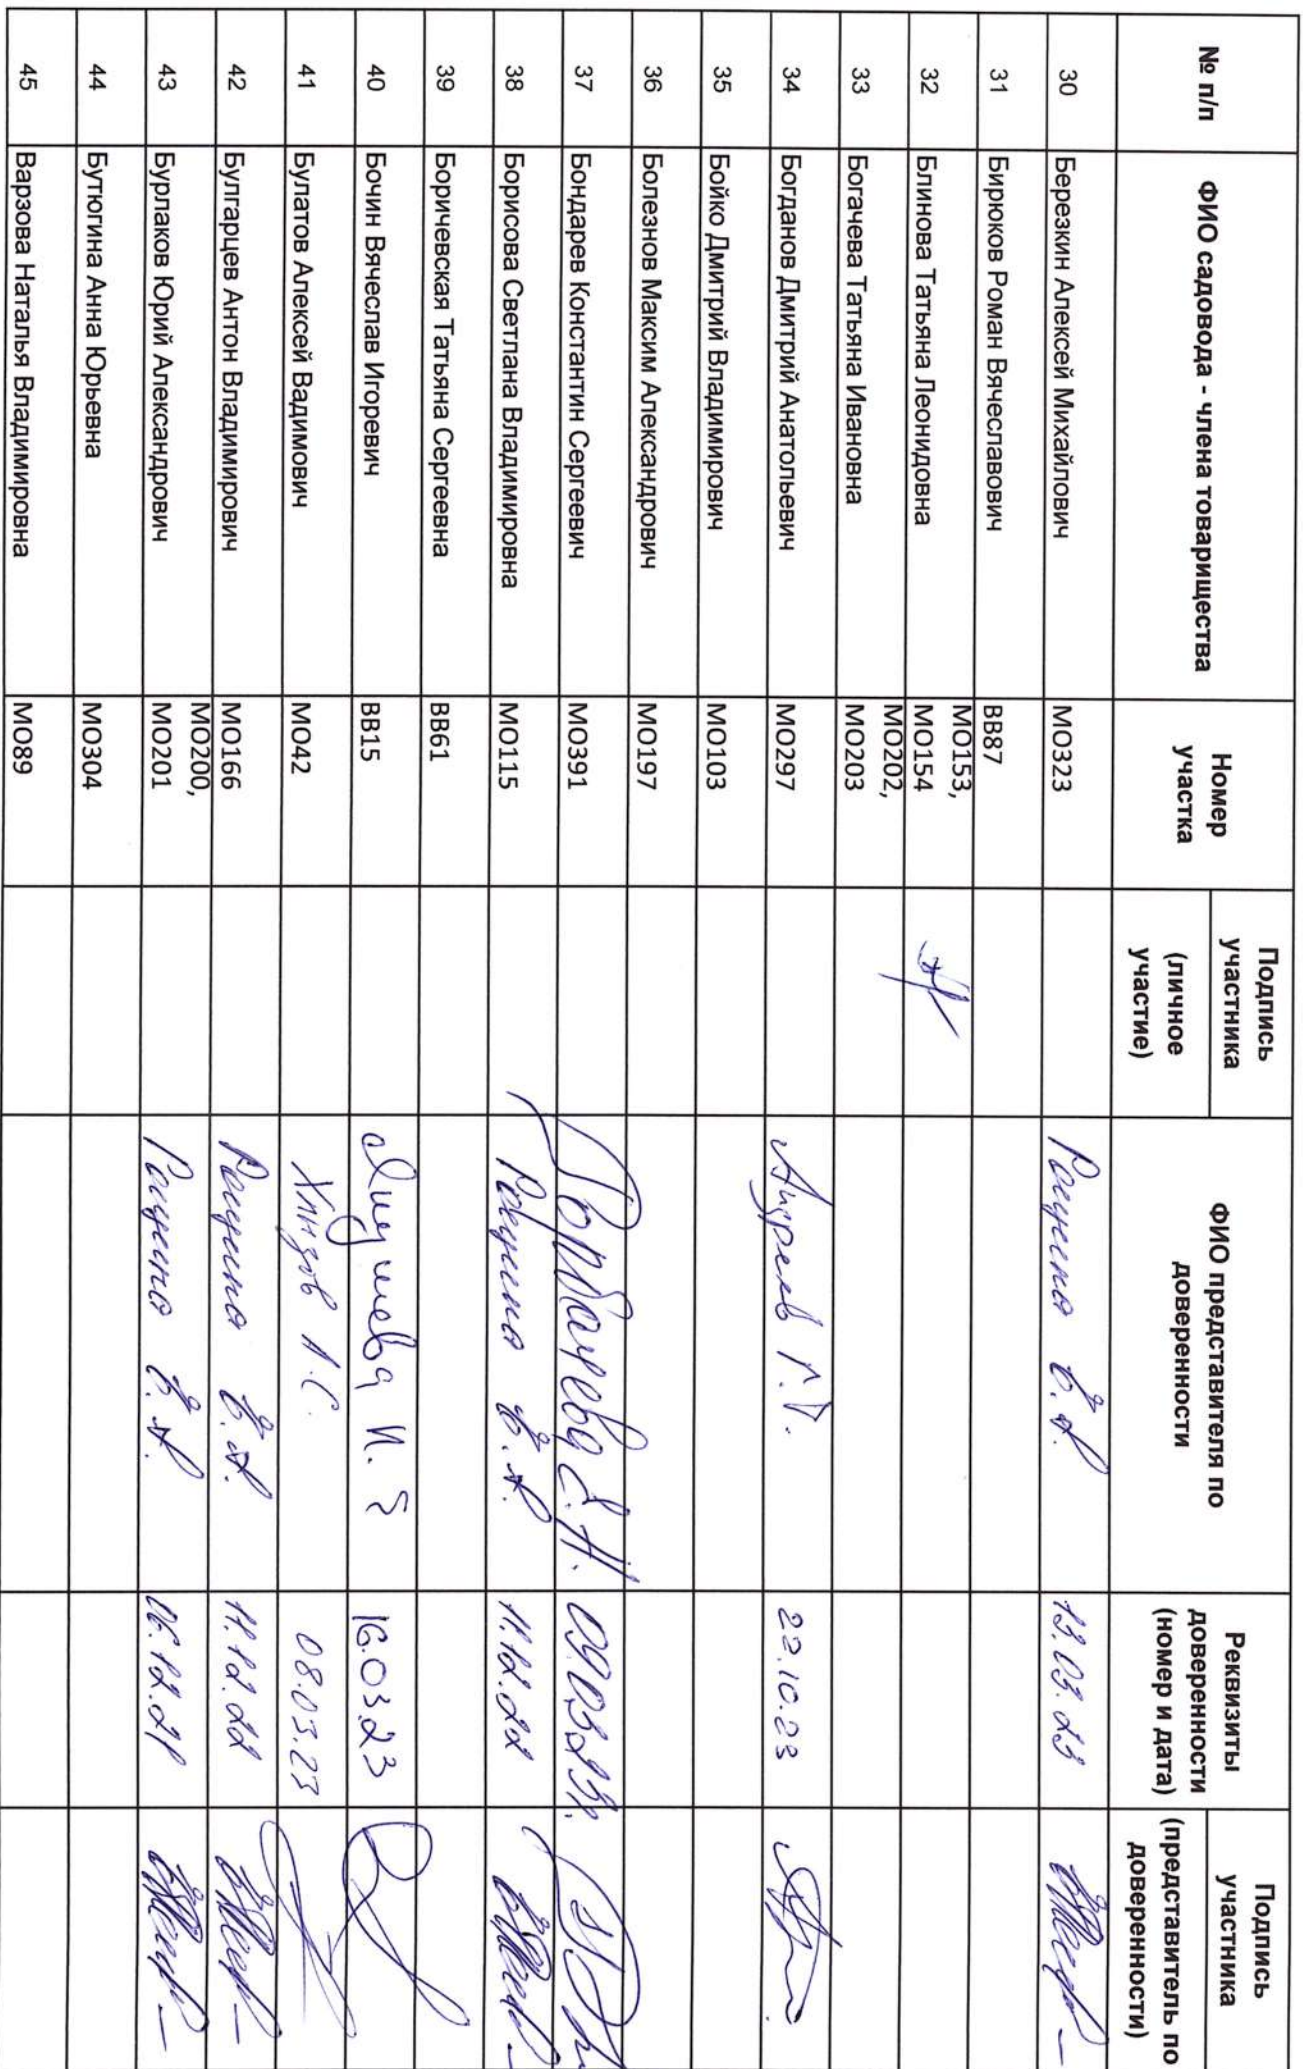 № п/п ФИО садовода - члена товарищества Номер участка Подпись участника (личное участие) ФИО представителя по доверенности Реквизиты доверенности (номер и дата) Подпись участника (представитель по доверенности)
30 Березкин Алексей Михайлович МО323 13.03.23
31 Бирюков Роман Вячеславович ВВ87
32 Блинова Татьяна Леонидовна МО153, МО154
33 Богачева Татьяна Ивановна МО202, МО203
34 Богданов Дмитрий Анатольевич МО297 22.10.23
35 Бойко Дмитрий Владимирович МО103
36 Болезнов Максим Александрович МО197
37 Бондарев Константин Сергеевич МО391 Бондарева 09.03.23г.
38 Борисова Светлана Владимировна МО115 11.12.22
39 Боричевская Татьяна Сергеевна ВВ61
40 Бочин Вячеслав Игоревич ВВ15 16.03.23
41 Булатов Алексей Вадимович МО42 08.03.23
42 Булгарцев Антон Владимирович МО166 11.12.22
43 Бурлаков Юрий Александрович МО200, МО201 06.12.21
44 Бутюгина Анна Юрьевна МО304
45 Варзова Наталья Владимировна МО89